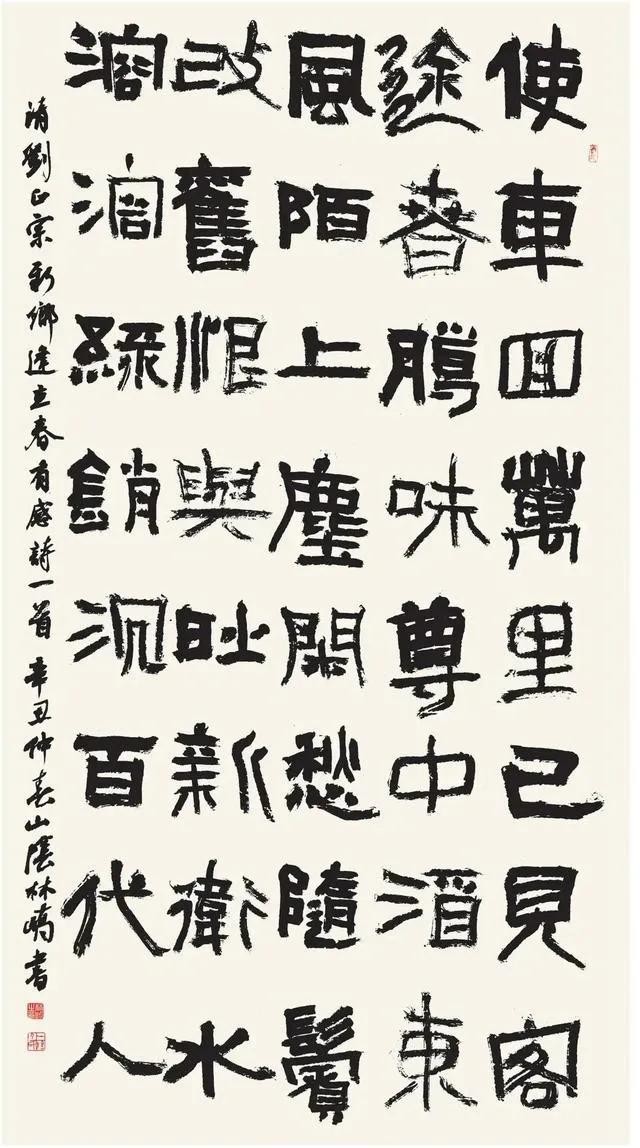 使車回萬里已見客
途春臘味尊中酒東
風陌上塵閑愁隨鬢
改舊恨與時新衛水
溶溶綠銷沉百代人
清劉正宗新鄉途立春有感詩一首 辛丑仲春山陰林嶠書